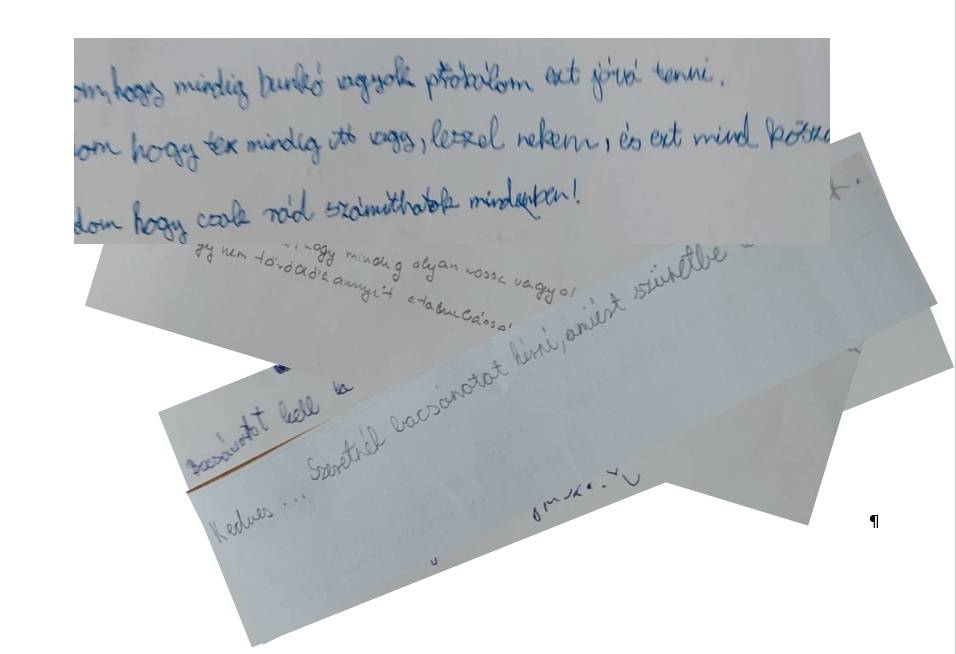 om, hogy mindig bunkó vagyok próbálom ezt jóvá tenni.
om hogy te mindig itt vagy, leszel nekem, és ezt mind kösz
dom hogy csak rád számíthatok mindenben!
hogy mindig olyan rossz vagyo
gy nem törődök annyit a tanulássa
Bocsánatot kell k
Kedves ... Szeretnél bocsánatot kérni, amiért szünetbe
¶